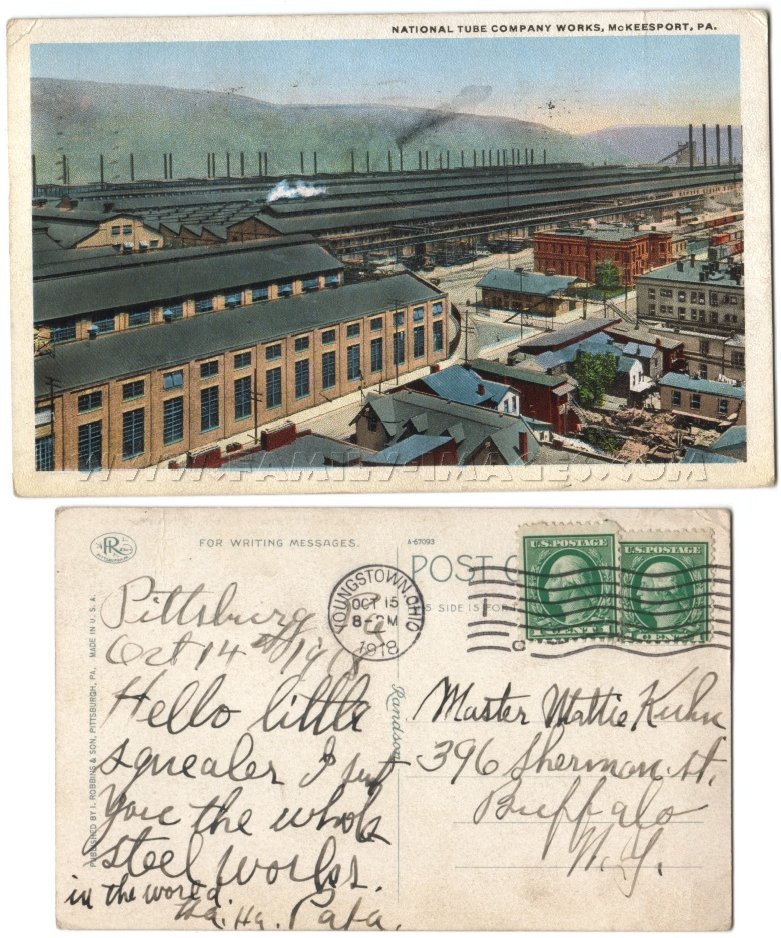 NATIONAL TUBE COMPANY WORKS, McKEESPORT, PA.
WWW.FAMILY-IMAGES.COM
PR
PITTSBURGH
FOR WRITING MESSAGES.
A-67093
POST C
IS SIDE IS FOR
U.S. POSTAGE
1 CENT 1
U.S. POSTAGE
CENT
YOUNGSTOWN, OHIO
OCT 15
8-PM
1918
1
PUBLISHED BY I. ROBBINS & SON, PITTSBURGH, PA. MADE IN U. S. A.
Pittsburg Pa
Oct 14th 1918
Hello little
squealer I put
you the whole
steel works.
in the world.
Ha. Ha. Papa.
Master Mattie Kuhn
396 Sherman St.
Buffalo
N.Y.